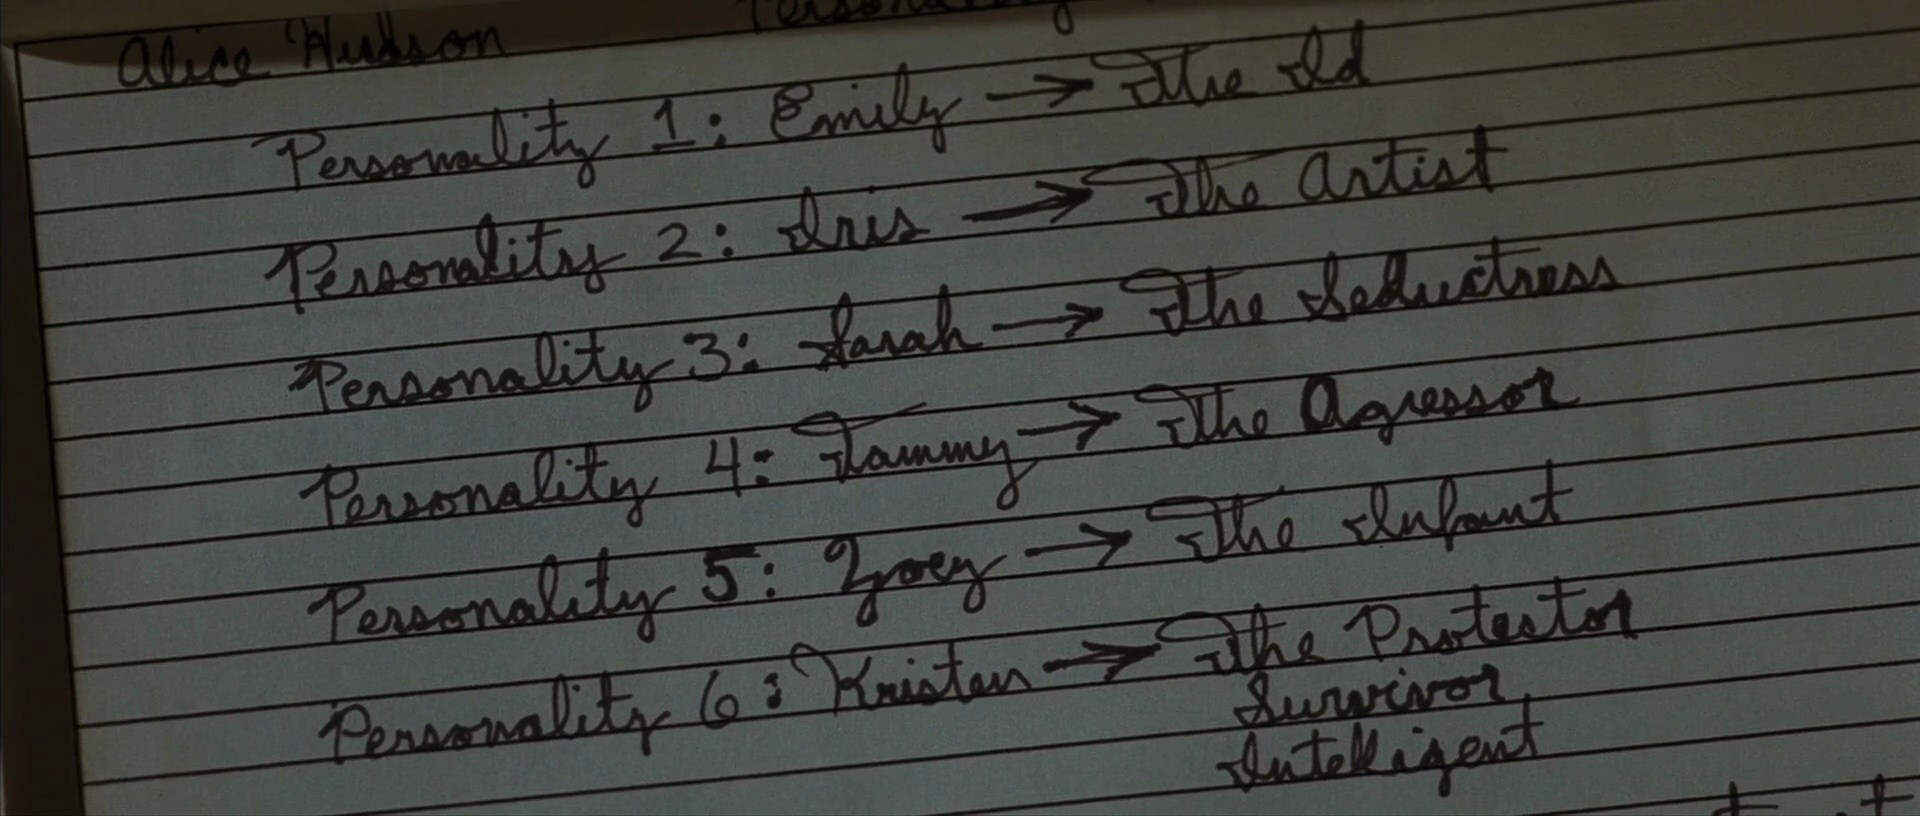 Alice Hudson
Personality 1: Emily → The Id
Personality 2: Iris → The Artist
Personality 3: Sarah → The Seductress
Personality 4: Tammy → The Agressor
Personality 5: Zoey → The Infant
Personality 6: Kristen → The Protector
Survivor
Intelligent